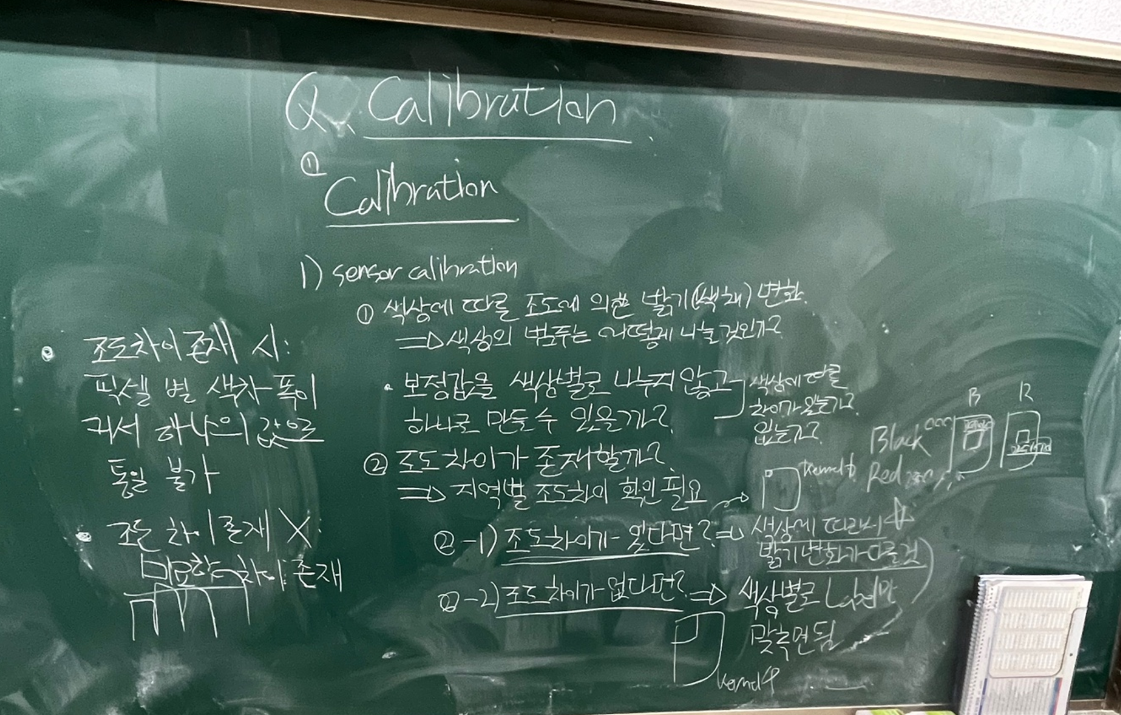 Q. Calibration
①
Calibration
1) sensor calibration
① 색상에 따른 조도에 의한 밝기(색채) 변화
⇒ 색상의 범주는 어떻게 나눌 것인가?
• 보정값을 색상별로 나누지 않고
하나로 만들 수 있을까?
색상에 따른
차이가 있는가?
없는가?
② 조도차이가 존재할까?
⇒ 지역별 조도차이 확인 필요
②-1) 조도차이가 있다면? ⇒ 색상에 따라서
밝기변화가 다를 것
②-2) 조도차이가 없다면? ⇒ 색상별로
맞추면 됨
조도차이 존재 시:
픽셀 별 색차 폭이
커서 하나의 값으로
통일 불가
• 조도 차이 존재 X:
차이 존재
B R
Black
Red